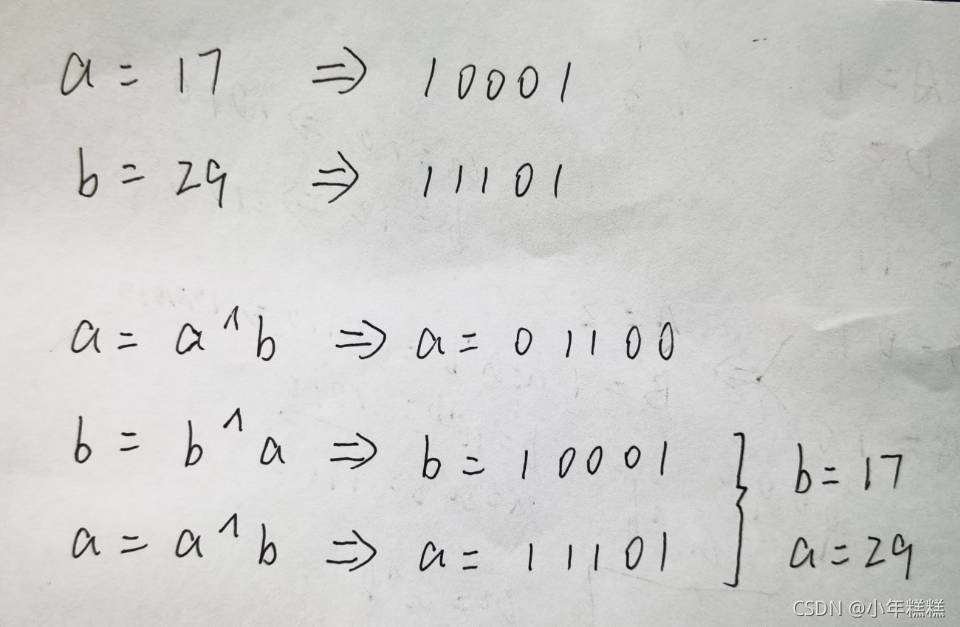 a = 17 ⇒ 10001
b = 29 ⇒ 11101
a = a ^ b ⇒ a = 01100
b = b ^ a ⇒ b = 10001
b = 17
a = a ^ b ⇒ a = 11101
a = 29
CSDN @小年糕糕